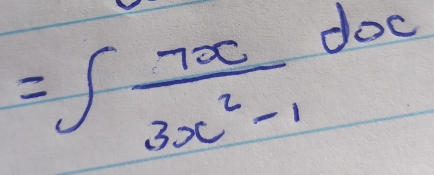 = ∫ 7x / (3x² - 1) dx